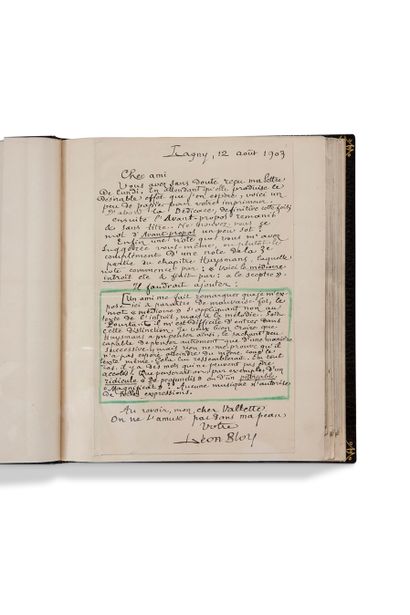 Lagny, 12 août 1903
Cher ami
Vous avez sans doute reçu ma lettre
de lundi. En attendant qu'elle produise le
désirable effet que j'en espère, voici un
peu de papier pour votre imprimeur.
D'abord la Dédicace, définitive cette fois
ensuite l'Avant-propos remanié
& sans titre. Ne trouvez vous pas
mot d'Avant-propos un peu sot ?
Enfin une note que vous m'avez
suggérée vous-même, ou plutôt le
complément d'une note de la 3e
partie du chapitre Huysmans, laquelle
note commence par : « Voici le médiocre
introït etc & finit par : a le sceptre ».
Il faudrait ajouter :
[Un ami me fait remarquer que je m'ex-
pose ici à paraître de mauvaise foi, le
mot « médiocre » s'appliquant non au
texte de l'introït, mais à la mélodie. Soit.
Pourtant il m'est difficile d'entrer dans
cette distinction. Je veux bien croire que
Huysmans a pu penser ainsi, le sachant peu
capable de penser autrement que d'une manière
successive, mais rien ne me prouve qu'il
n'a pas espéré atteindre du même coup le
texte même. Cela lui ressemblerait. En tout
cas, il y a des mots qui ne peuvent pas être
accolés. Que penserait-on, par exemple, d'un
ridicule « De profundis » ou d'un
« Magnificat » ? Aucune musique n'autorise
de telles expressions.
Au revoir, mon cher Vallette
On ne s'amuse pas dans ma peau
Votre
Léon Bloy